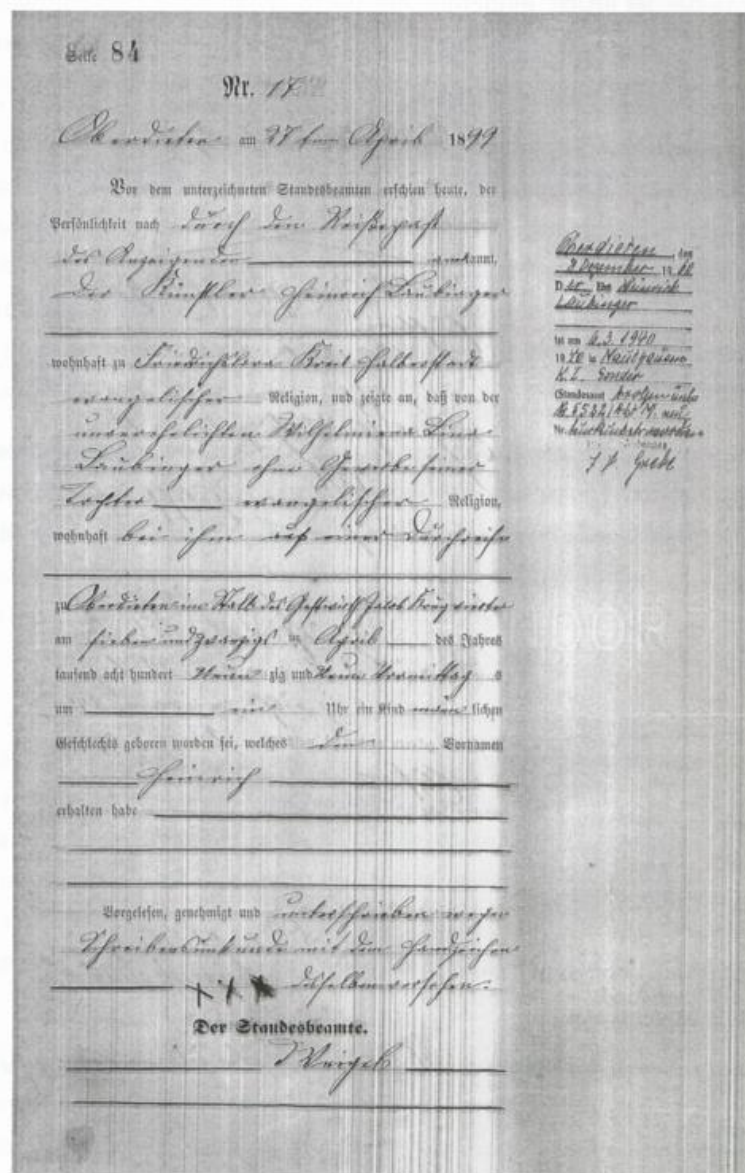 Seite 84
Nr. 17
Oberdieten am 27 ten April 1899
Vor dem unterzeichneten Standesbeamten erschien heute, der
Persönlichkeit nach durch den Reisepaß
des Anzeigenden kannt,
der Künstler Heinrich Laubinger
wohnhaft zu Friedrichslora Kreis Halberstadt
evangelischer Religion, und zeigte an, daß von der
unverehelichten Wilhelmina Lina
Laubinger ohne Gewerbe seiner
Tochter evangelischer Religion,
wohnhaft bei ihm auf einer Durchreise
zu Oberdieten im Stall des Gastwirth Jakob
am sieben und zwanzigs ten April des Jahres
tausend acht hundert Neun zig und Neun Vormittag s
um ein Uhr ein Kind männ lichen
Geschlechts geboren worden sei, welches den Vornamen
Heinrich
erhalten habe
Vorgelesen, genehmigt und unterschrieben wegen
Schreibensunkunde mit dem Handzeichen
XXX desselben versehen.
Der Standesbeamte.
Weigel
Oberdieten, den
Dezember 19
D Heinrich
Laubinger
ist am 6.3.1940
19 in
K. L.
(Standesamt
Nr.